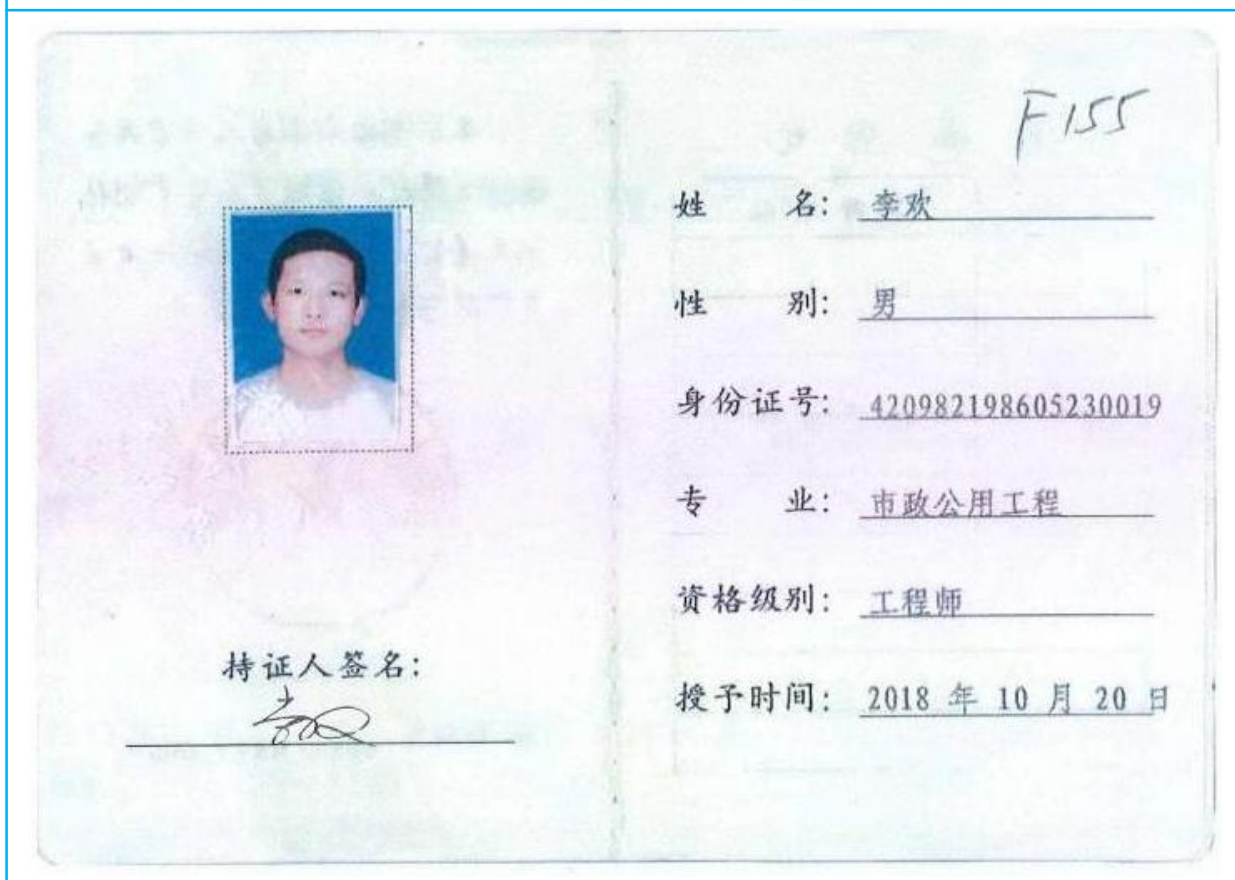 F155
姓 名: 李欢
性 别: 男
身份证号: 420982198605230019
专 业: 市政公用工程
资格级别: 工程师
持证人签名:
授予时间: 2018 年 10 月 20 日